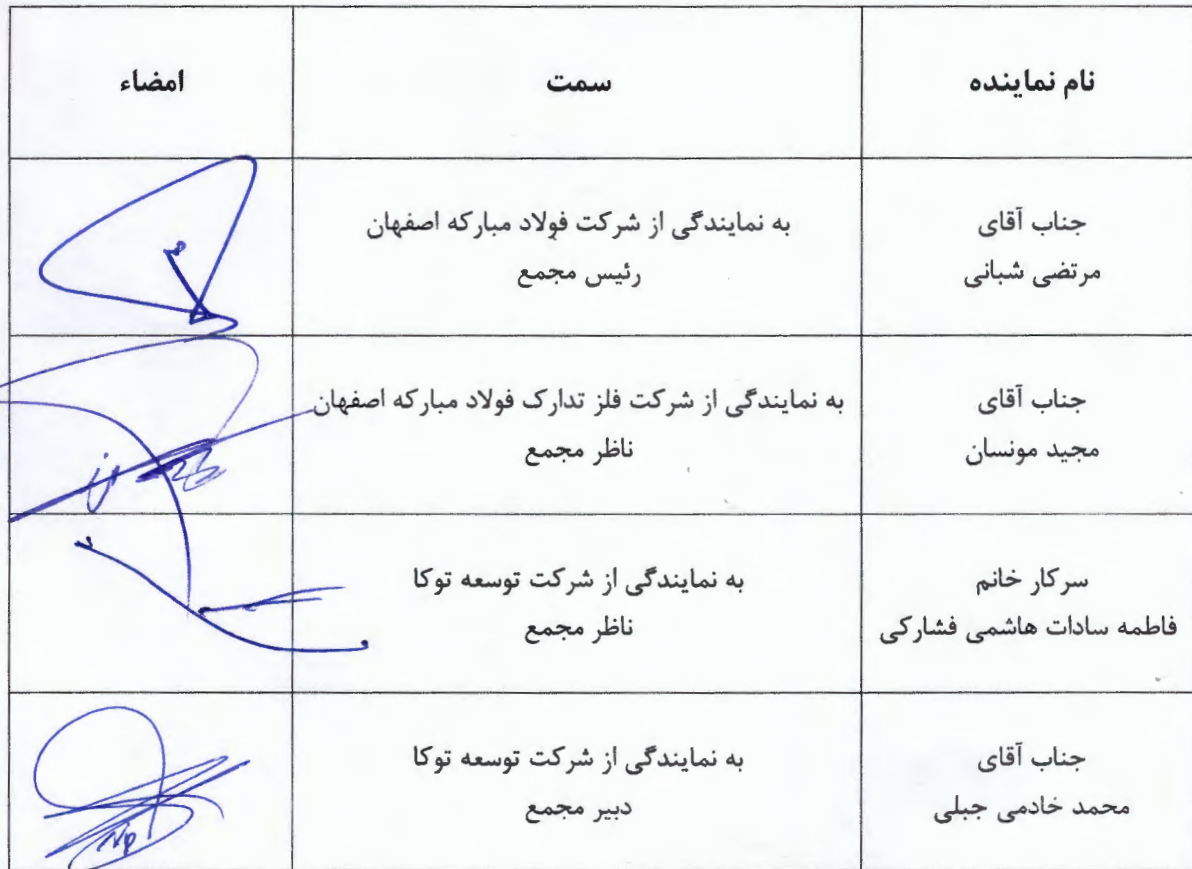 نام نماینده
سمت
امضاء
جناب آقای
مرتضی شبانی
به نمایندگی از شرکت فولاد مبارکه اصفهان
رئیس مجمع
جناب آقای
مجید مونسان
به نمایندگی از شرکت فلز تدارک فولاد مبارکه اصفهان
ناظر مجمع
سرکار خانم
فاطمه سادات هاشمی فشارکی
به نمایندگی از شرکت توسعه توکا
ناظر مجمع
جناب آقای
محمد خادمی جبلی
به نمایندگی از شرکت توسعه توکا
دبیر مجمع